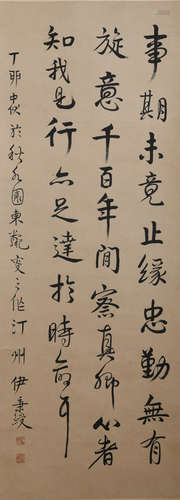 事期未竟止缘忠勤無有
旋意千百年間察真卿心者
知我見行亦足達於時命耳
丁卯中秋於秋水園東 之作汀州伊秉綬